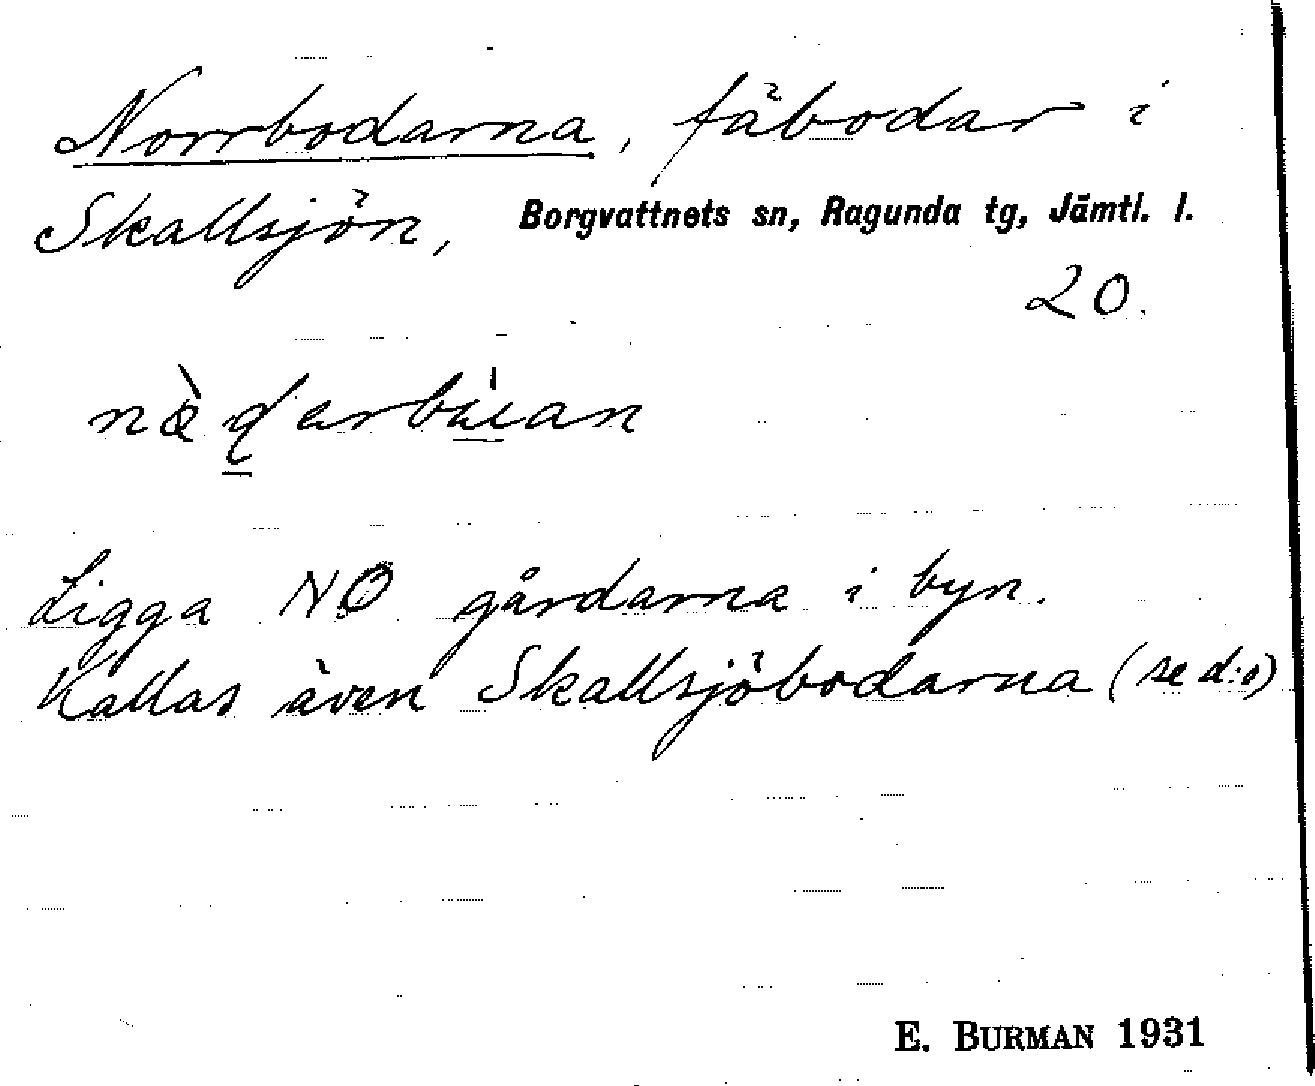 Norrbodarna, fäbodar i
Skallsjön, Borgvattnets sn, Ragunda tg, Jämtl. l.
20.
Ligga NO gårdarna i byn.
Kallas även Skallsjöbodarna (se d:o)
E. BURMAN 1931